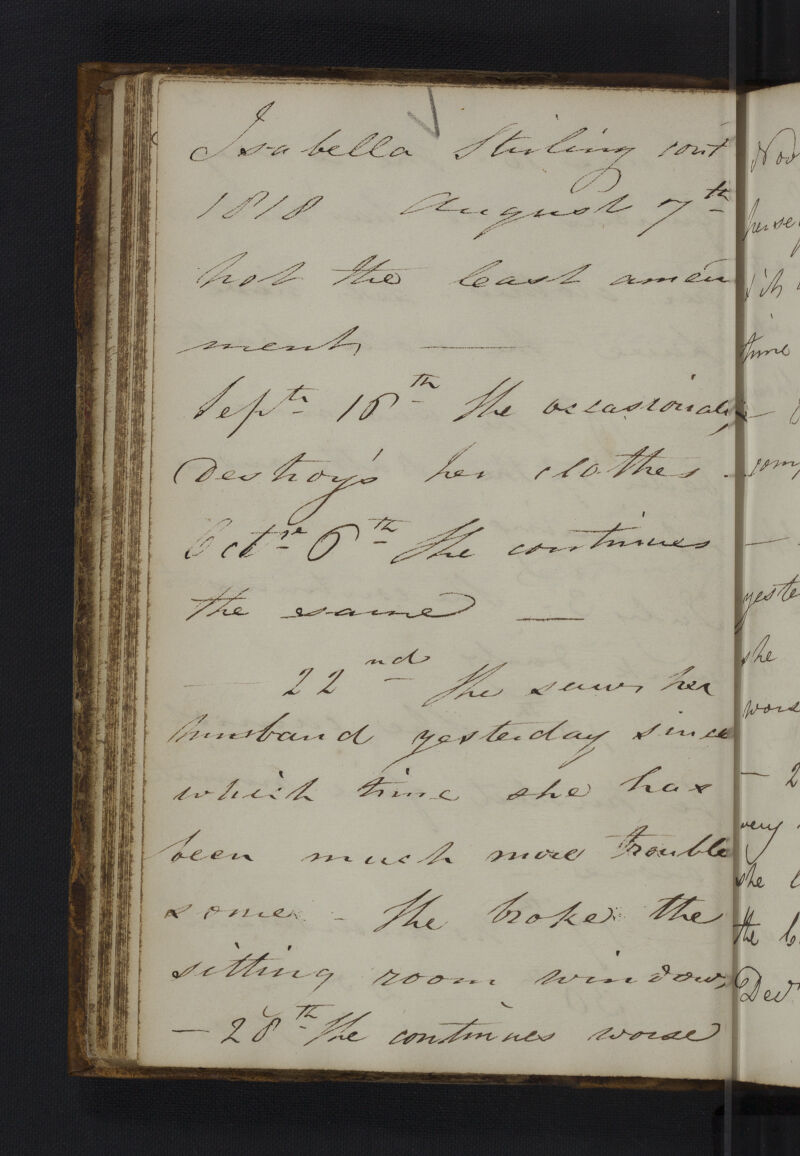 Isabella Stirling cont
1818 August 7th
not the least amen
ment —
Septr 16th She occasionally
destroy's her clothes -
Octr 6th She continues
the same —
— 22nd She saw her
husband yesterday since
which time she has
been much more trouble
some - She broke the
sitting room window,
— 28th She continues worse
time
yeste
she
wors
— 2
very
she
the
Decr